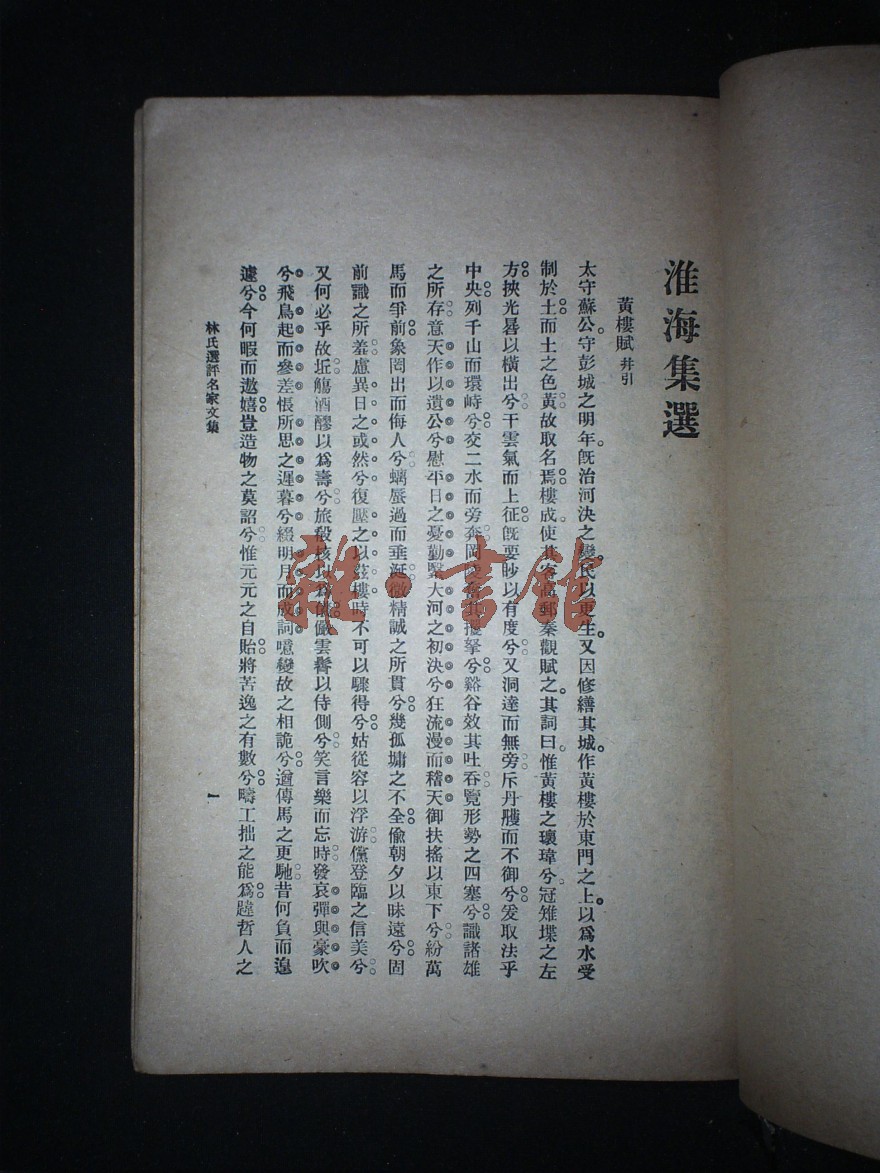 淮海集選
黃樓賦 并引
太守蘇公守彭城之明年旣治河決之變民以更生又因修繕其城作黃樓於東門之上以爲水受
制於土而土之色黃故取名焉樓成使其客高郵秦觀賦之其詞曰惟黃樓之瓌瑋兮冠雉堞之左
方挾光晷以橫出兮干雲氣而上征旣要眇以有度兮又洞達而無旁斥丹雘而不御兮爰取法乎
中央列千山而環峙兮交二水而旁奔岡陵奮其攫拏兮谿谷效其吐吞覽形勢之四塞兮識諸雄
之所存意天作以遺公兮慰平日之憂勤繄大河之初決兮狂流漫而稽天御扶搖以東下兮紛萬
馬而爭前象罔出而侮人兮螭蜃過而垂涎微精誠之所貫兮幾孤墉之不全偷朝夕以昧遠兮固
前識之所羞慮異日之或然兮復壓之以茲樓時不可以驟得兮姑從容以浮游儻登臨之信美兮
又何必乎故丘觴酒醪以爲壽兮旅殽核以爲儀儼雲髾以侍側兮笑言樂而忘時發哀彈與豪吹
兮飛鳥起而參差悵所思之遲暮兮綴明月而成詞噫變故之相詭兮遒傳馬之更馳昔何負而遑
遽兮今何暇而遨嬉豈造物之莫詔兮惟元元之自貽將苦逸之有數兮疇工拙之能爲韙哲人之
林氏選評名家文集
一
雜·書館